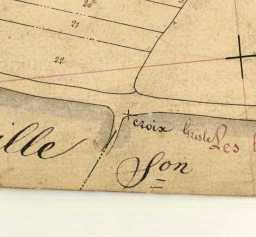 21
22
croix
Les
ille
Son